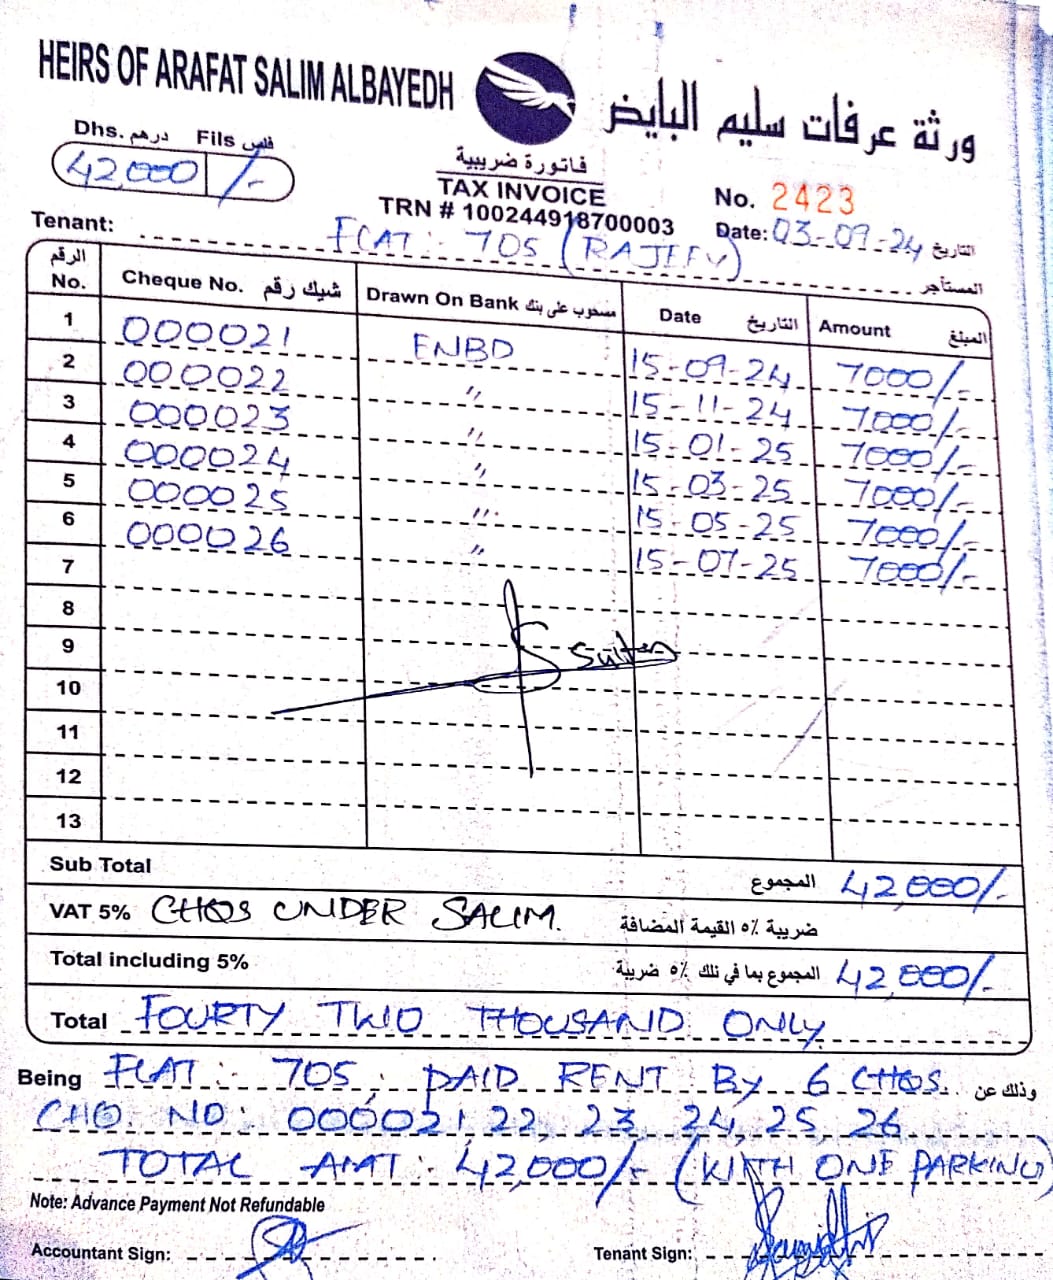 HEIRS OF ARAFAT SALIM ALBAYEDH
ورثة عرفات سليم البايض
Dhs. درهم Fils فلس
42,000 /-
فاتورة ضريبية
TAX INVOICE
TRN # 100244918700003
No. 2423
Date: 03-09-24 التاريخ
Tenant: FLAT :- 705 (RAJEEV) المستأجر
الرقم No. Cheque No. شيك رقم Drawn On Bank مسحوب على بنك Date التاريخ Amount المبلغ
1 000021 ENBD 15-09-24 7000/-
2 000022 " 15-11-24 7000/-
3 000023 " 15-01-25 7000/-
4 000024 " 15-03-25 7000/-
5 000025 " 15-05-25 7000/-
6 000026 " 15-07-25 7000/-
7
8
9
10
11
12
13
Sub Total المجموع 42,000/-
VAT 5% CHQS UNDER SALIM. ضريبة ٥٪ القيمة المضافة
Total including 5% المجموع بما في ذلك ٥٪ ضريبة 42,000/-
Total FOURTY TWO THOUSAND ONLY
Being FLAT :- 705, PAID RENT By 6 CHQS. وذلك عن
CHQ. NO: 000021, 22, 23, 24, 25, 26
TOTAL AMT :- 42,000/- (WITH ONE PARKING)
Note: Advance Payment Not Refundable
Accountant Sign:
Tenant Sign: